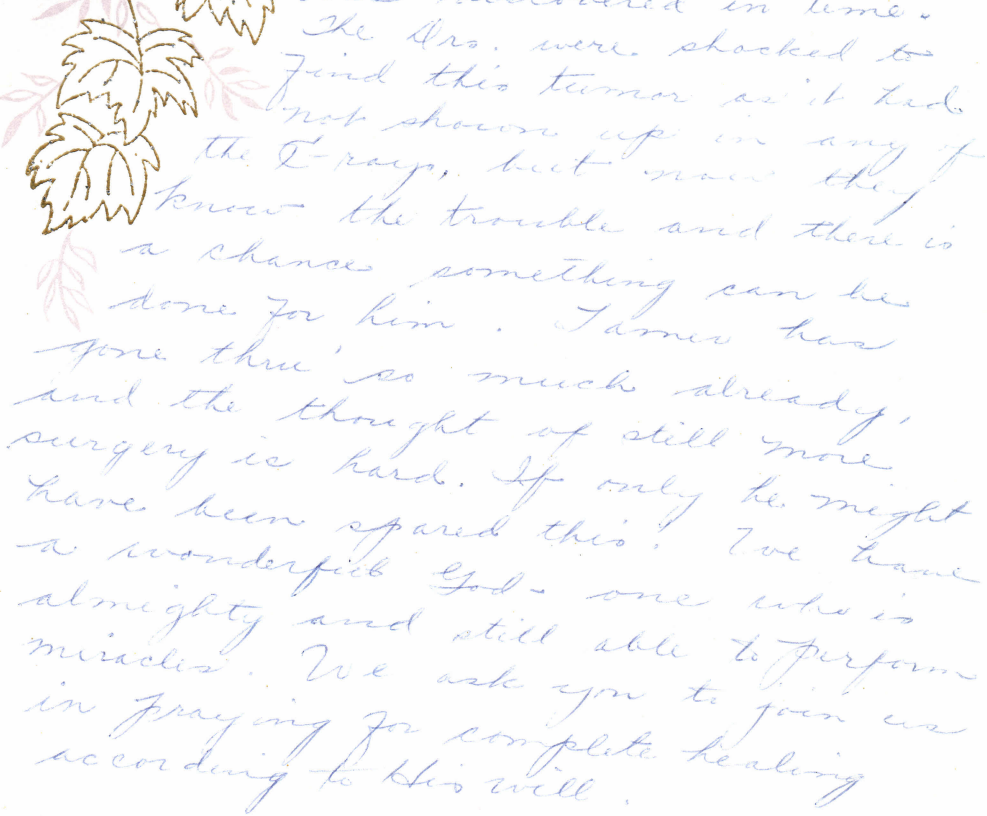 discovered in time.
The Drs. were shocked to
find this tumor as it had
not shown up in any of
the X-rays, but now they
know the trouble and there is
a chance something can be
done for him. James has
gone thru' so much already,
and the thought of still more
surgery is hard. If only he might
have been spared this! We have
a wonderful God - one who is
almighty and still able to perform
miracles. We ask you to join us
in praying for complete healing
according to His will.